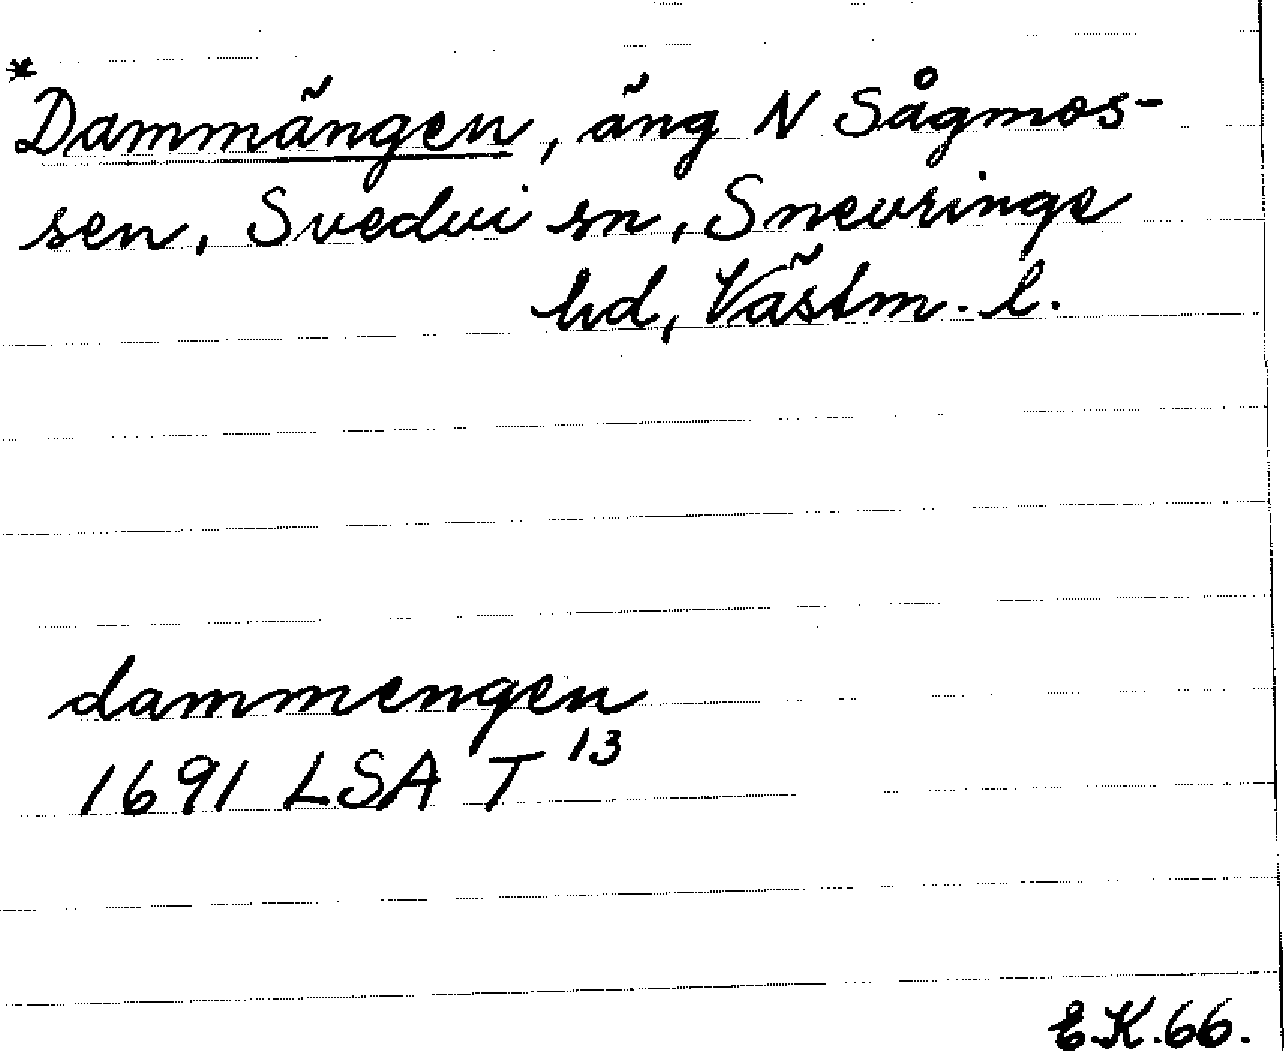 *Dammängen, äng N Sågmos-
sen, Svedvi sn, Snevringe
hd, Västm. l.
dammengen
1691 LSA T 13
E.K.66.